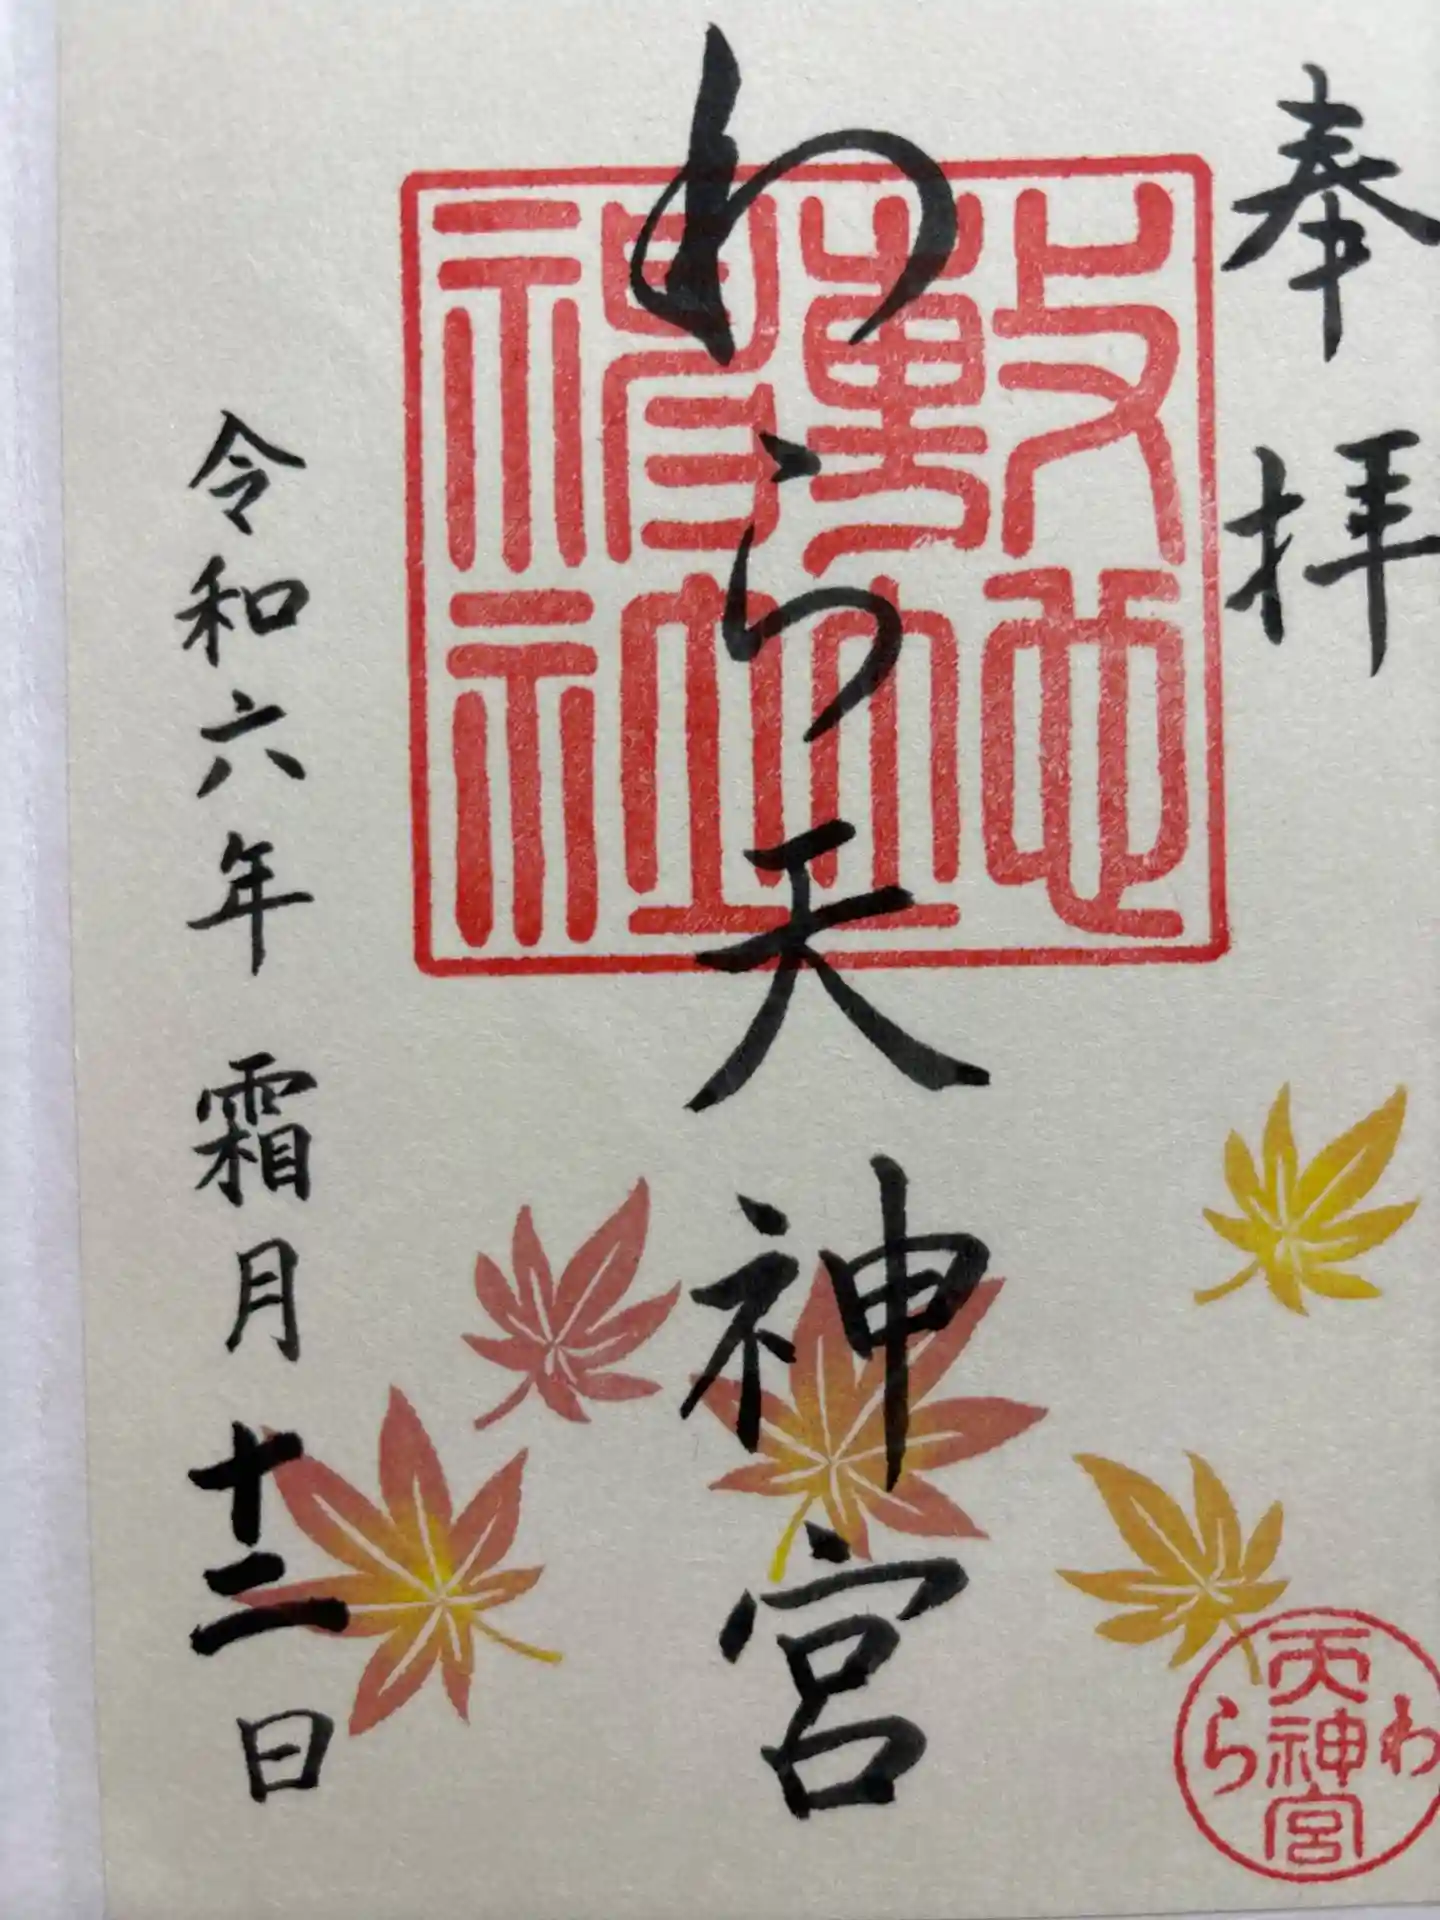 奉拝
わら天神宮
令和六年 霜月 十二日
敷地神社
わら天神宮